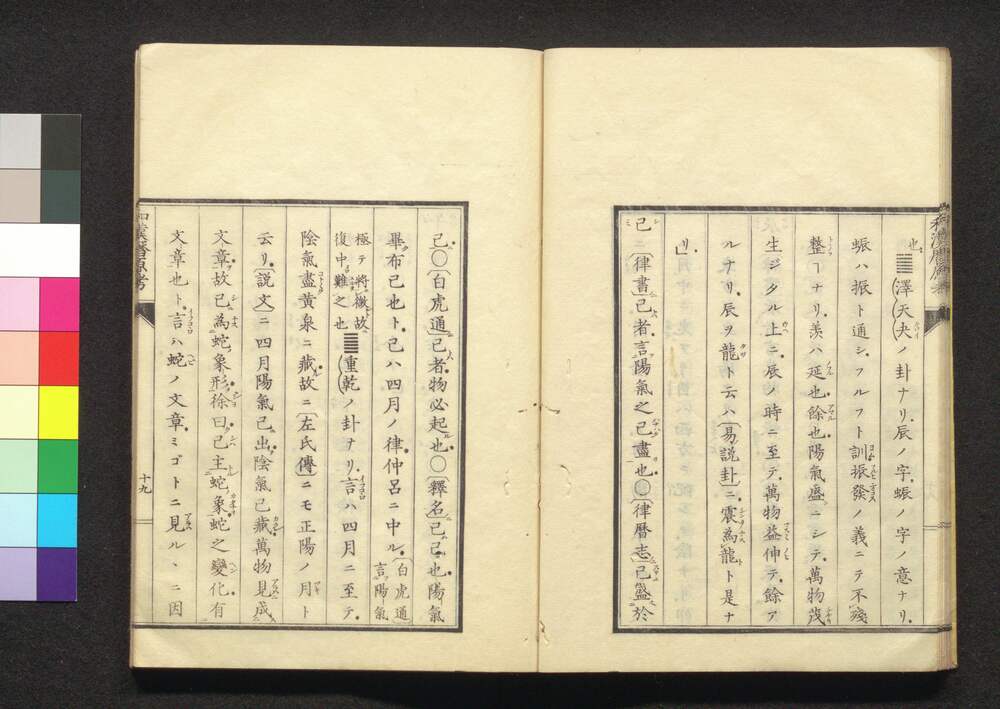 也䷪澤天夬ノ卦ナリ辰ノ字蜄ノ字ノ意ナリ
蜄ハ振ト通シフルフト訓振發ノ義ニテ不殘
整フナリ羨ハ延也餘也陽氣盛ニシテ萬物茂
生ジタル上ニ辰ノ時ニ至テ萬物益伸テ餘ア
ルナリ辰ヲ龍ト云ハ易説卦ニ震為龍ト是ナ
リ
巳ニ律書巳者言陽氣之已盡也〇律曆志已盛於
巳〇白虎通巳者物必起也〇釋名巳已也陽氣
畢布已也ト巳ハ四月ノ律仲呂ニ中ル白虎通言陽氣
極テ將微故復中難之也䷀重乾ノ卦ナリ言ハ四月ニ至テ
陰氣盡黄泉ニ藏故ニ左氏傳ニモ正陽ノ月ト
云リ説文ニ四月陽氣已出陰氣已藏萬物見成
文章故巳為蛇象形徐曰巳主蛇象蛇之變化有
文章也ト言ハ蛇ノ文章ミゴトニ見ルヽニ因
十九